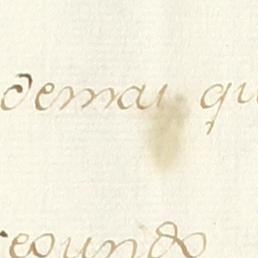 demai qu
segundo